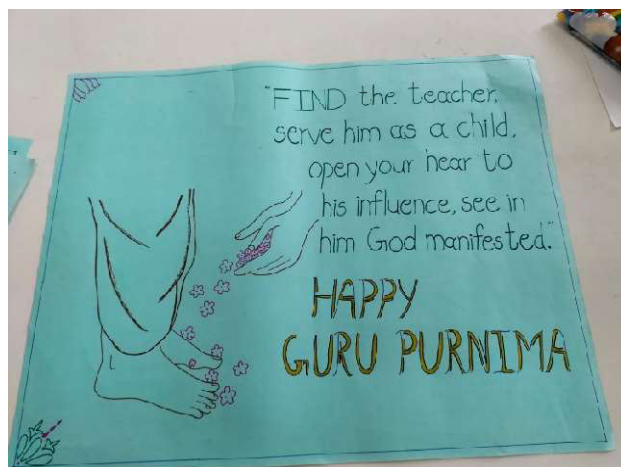 "FIND the teacher,
serve him as a child,
open your hear to
his influence, see in
him God manifested."
HAPPY
GURU PURNIMA